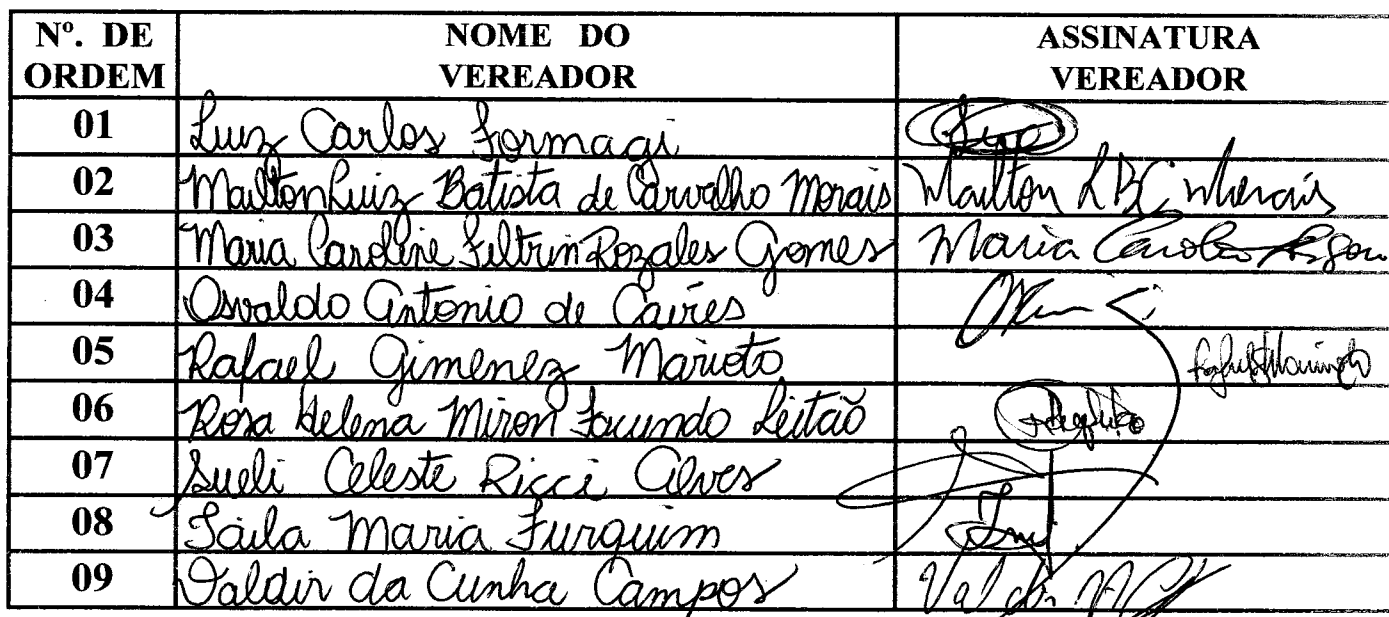 Nº. DE ORDEM NOME DO VEREADOR ASSINATURA VEREADOR
01 Luiz Carlos Formagi
02 Mailton Luiz Batista de Carvalho Morais Mailton L B C Morais
03 Maria Caroline Feltrin Rozales Gomes Maria
04 Osvaldo Antonio de Caires
05 Rafael Gimenez Marioto
06 Rosa Helena Miron Facundo Leitão
07 Sueli Celeste Ricci Alves
08 Táila Maria Furquim
09 Valdir da Cunha Campos Valdir